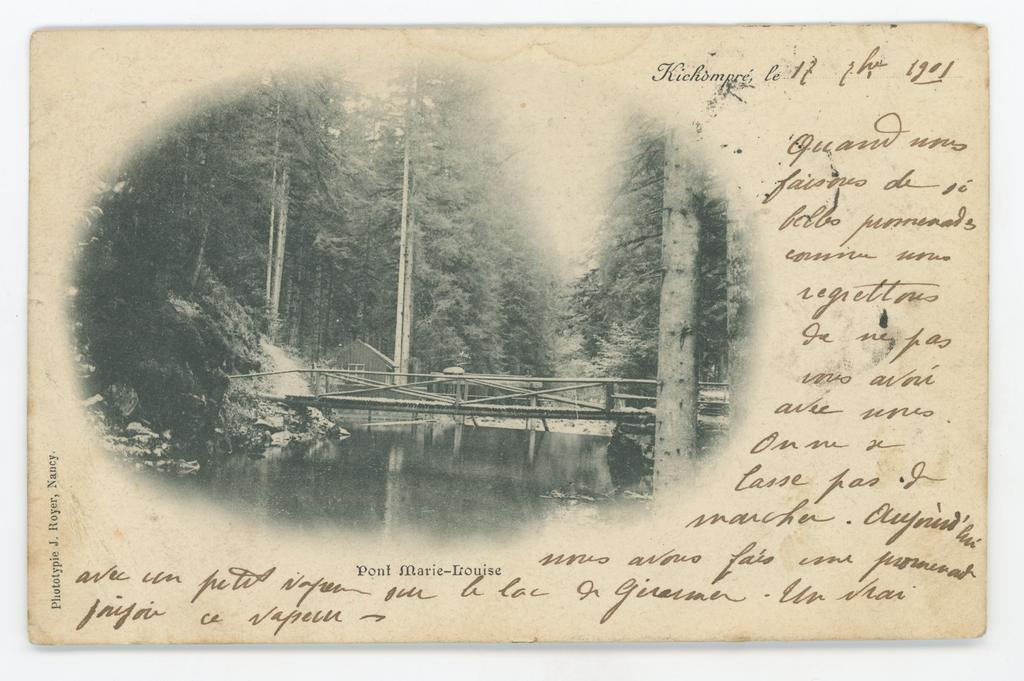 Kichompré, le 17 7bre 1901
Quand nous
faisons de si
belles promenades
comme nous
regrettons
de ne pas
vous avoir
avec nous.
On ne se
lasse pas de
marcher. Aujourd'hui
nous avons fais une promenade
avec un petit vapeur sur le lac de Gérarmer. Un vrai
joujou ce vapeur
Pont Marie-Louise
Phototypie J. Royer, Nancy.